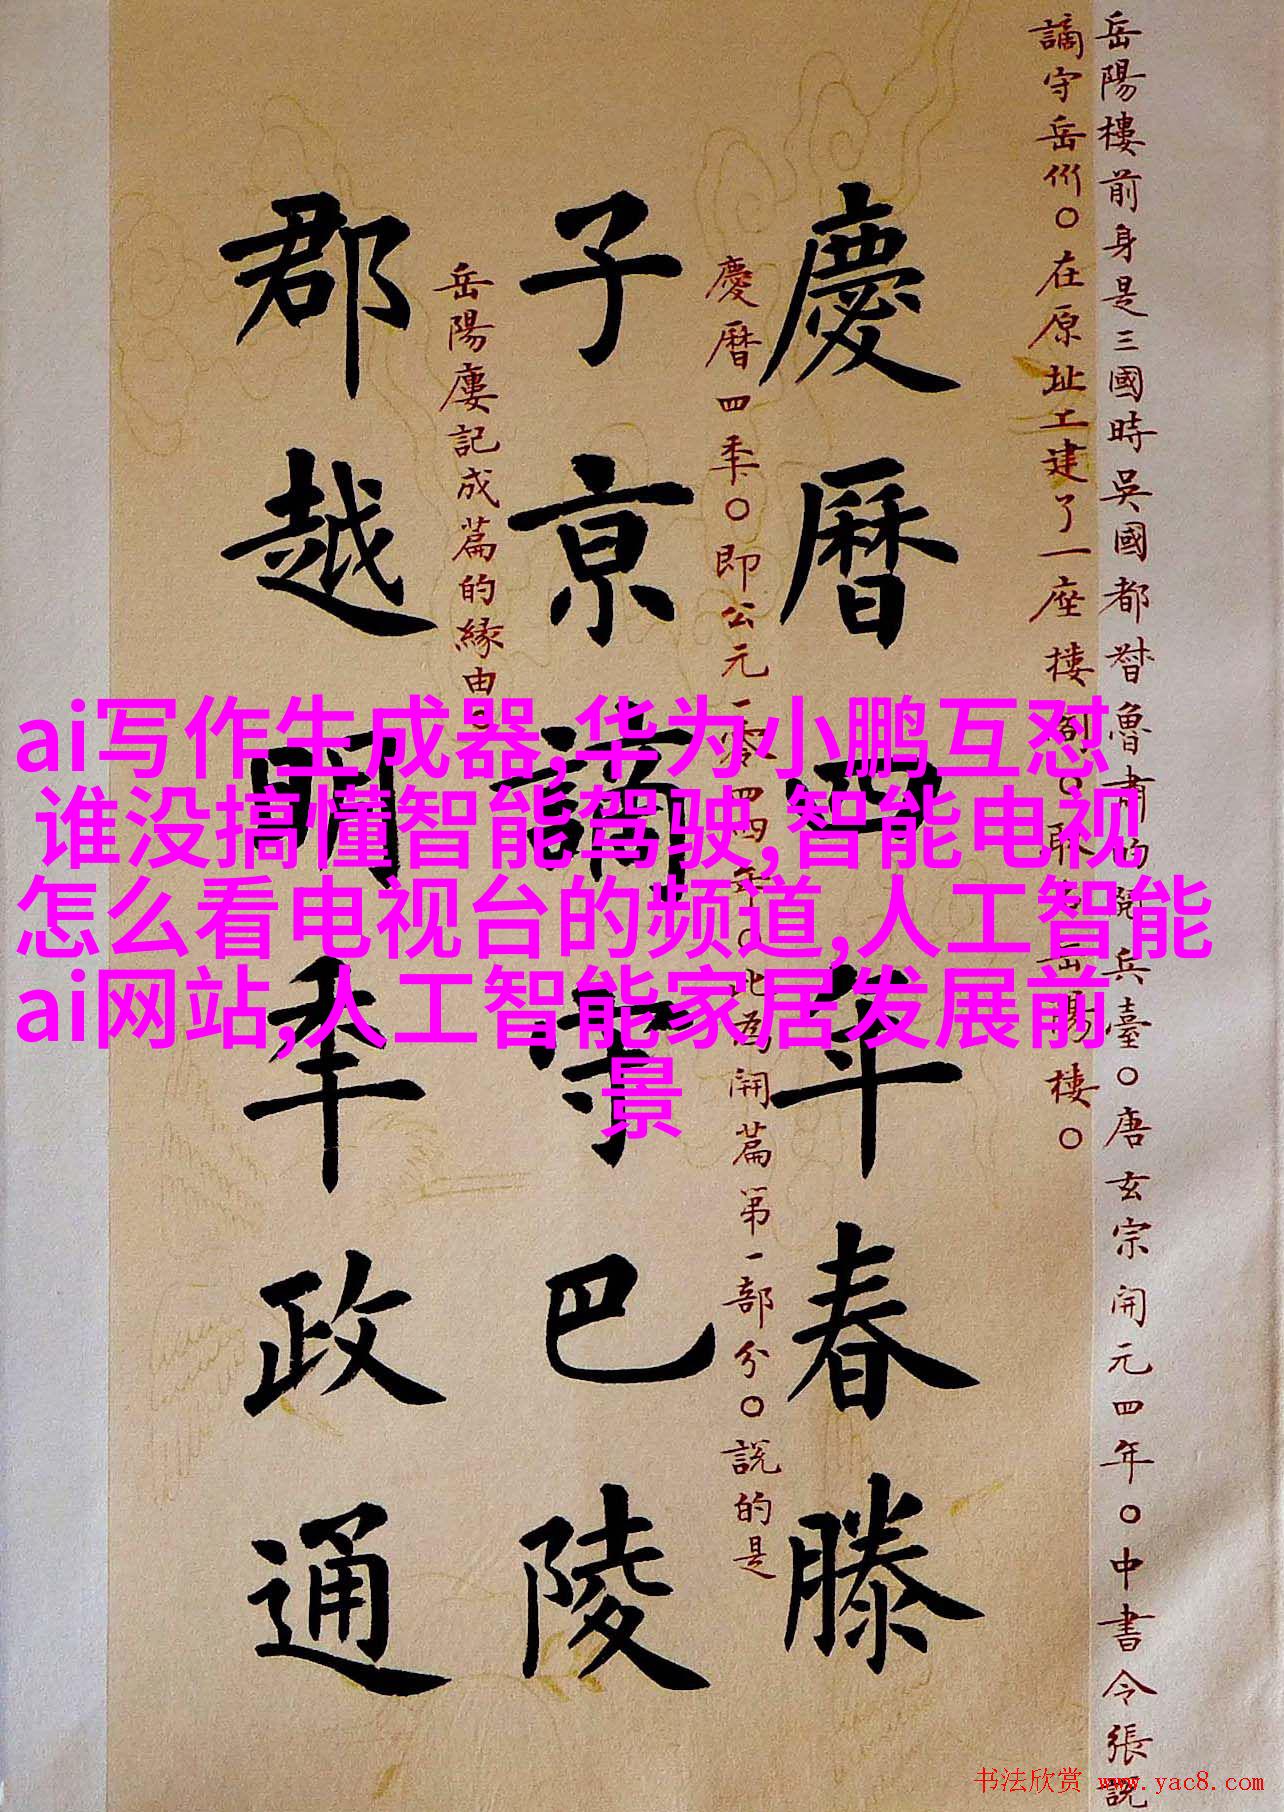 岳陽樓前身是三國時吳國都督魯肅的閱兵臺。唐玄宗開元四年。中書令張説
謫守岳州。在原址工建了一座樓閣。取名岳陽樓。
慶曆四年春滕
慶曆四秊。即公元一零四四年。此為開篇第一部分。説的是
子京謫守巴陵
岳陽廔記成篇的緣由。
郡越明秊政通
ai写作生成器,华为小鹏互怼
谁没搞懂智能驾驶,智能电视
怎么看电视台的频道,人工智能
ai网站,人工智能家居发展前
景
书法欣赏 www.yac8.com